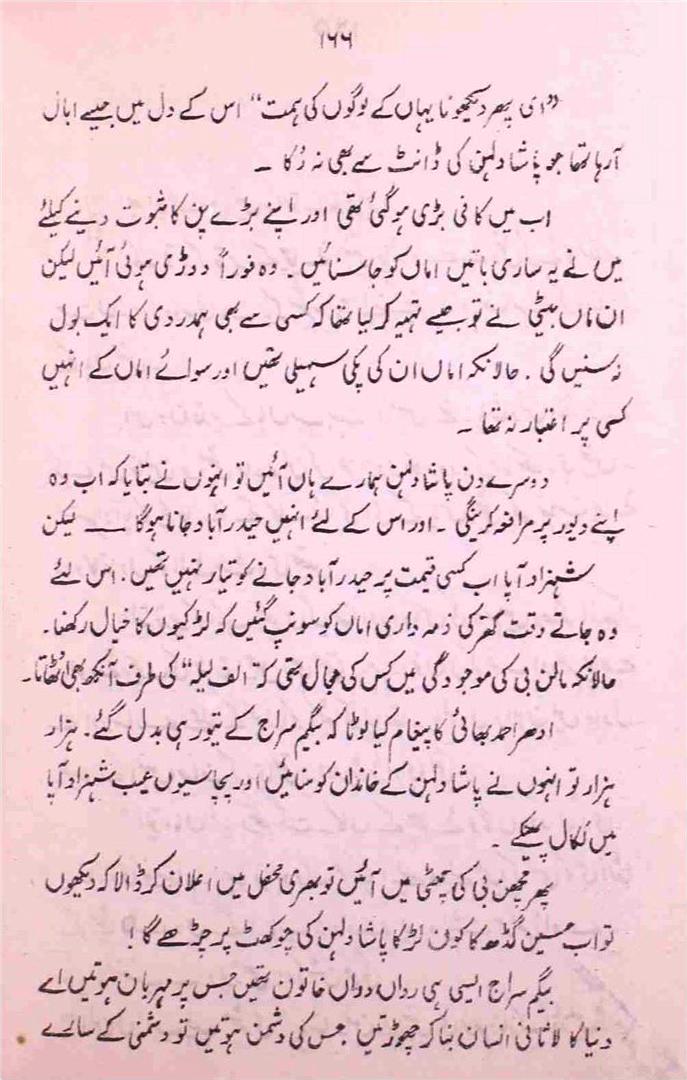 ۱۶۶
”ای پھر دیکھو نا یہاں کے لوگوں کی ہمت“ اس کے دل میں جیسے ابال
آرہا تھا جو پاشا دلہن کی ڈانٹ سے بھی نہ رُکا ۔
اب میں کافی بڑی ہو گئی تھی اور اپنے بڑے پن کا ثبوت دینے کیلئے
میں نے یہ ساری باتیں اماں کو جا سنائیں۔ وہ فوراً دوڑی ہوئی آئیں لیکن
ان ماں بیٹی نے تو جیسے تہیہ کر لیا تھا کہ کسی سے بھی ہمدردی کا ایک بول
نہ سنیں گی ۔ حالانکہ اماں ان کی پکی سہیلی تھیں اور سوائے اماں کے انہیں
کسی پر اعتبار نہ تھا ۔
دوسرے دن پاشا دلہن ہمارے ہاں آئیں تو انہوں نے بتایا کہ اب وہ
اپنے دیور پر مرافعہ کرینگی ۔ اور اس کے لئے انہیں حیدرآباد جانا ہوگا — لیکن
شہزاد آپا اب کسی قیمت پر حیدرآباد جانے کو تیار نہیں تھیں۔ اس لئے
وہ جاتے وقت گھر کی ذمہ داری اماں کو سونپ گئیں کہ لڑکیوں کا خیال رکھنا۔
حالانکہ مالن بی کی موجودگی میں کس کی مجال تھی کہ ”الف لیلہ“ کی طرف آنکھ بھی اٹھاتا۔
ادھر احمد بھائی کا پیغام کیا لوٹا کہ بیگم سراج کے تیور ہی بدل گئے۔ ہزار
ہزار تو انہوں نے پاشا دلہن کے خاندان کو سنائیں اور پچاسیوں عیب شہزاد آپا
میں نکال پھینکے ۔
پھر مچھن بی کی چھٹی میں آئیں تو بھری محفل میں اعلان کر ڈالا کہ دیکھوں
تو اب حسین گڈھ کا کون لڑکا پاشا دلہن کی چوکھٹ پر چڑھے گا!
بیگم سراج ایسی ہی رواں دواں خاتون تھیں جس پر مہربان ہوتیں اسے
دنیا کا لاثانی انسان بنا کر چھوڑتیں جس کی دشمن ہوتیں تو دشمنی کے سارے